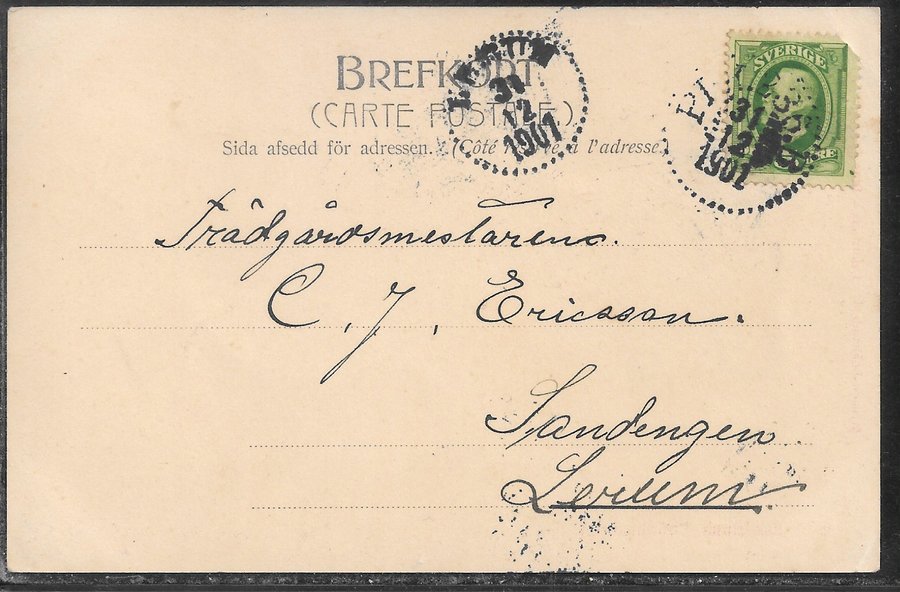 BREFKORT
(CARTE POSTALE)
Sida afsedd för adressen. (Côté réservé à l'adresse.)
SVERIGE
31
12
1901
31
12
1901
Trädgårdsmestaren.
C. J. Ericsson.
Sandengen
Lerum